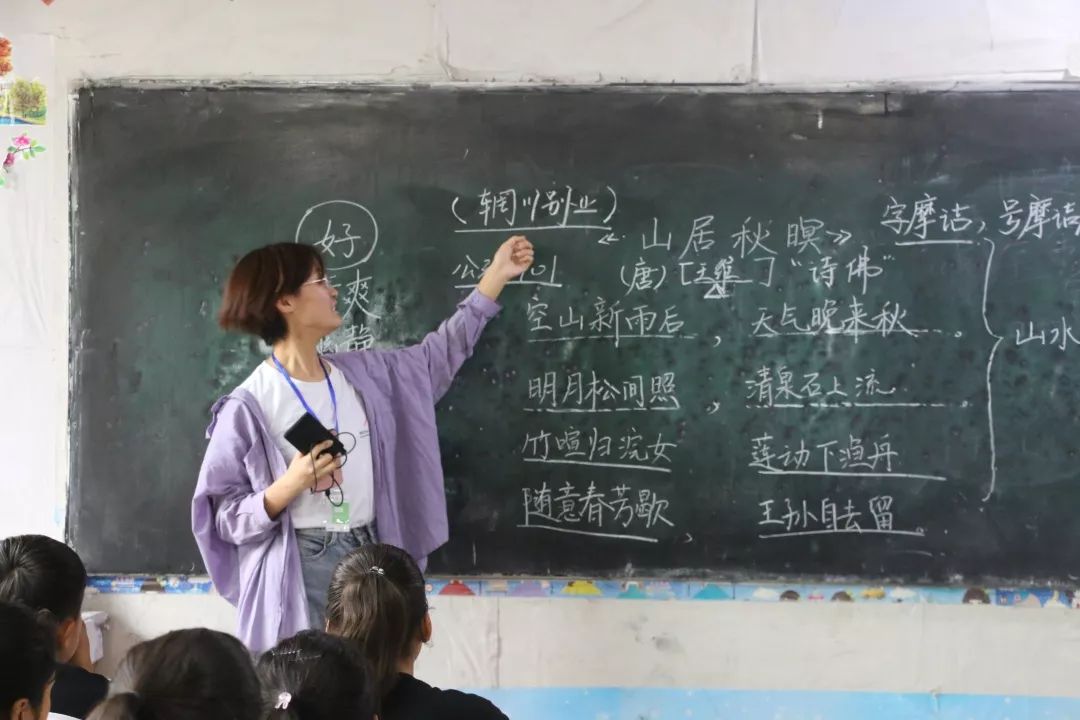 好
爽
(辋川别业)
《山居秋暝》
字摩诘，号摩诘
(唐)[王维]“诗佛”
空山新雨后，天气晚来秋。
明月松间照，清泉石上流。
竹喧归浣女，莲动下渔舟
随意春芳歇、王孙自去留。
山水